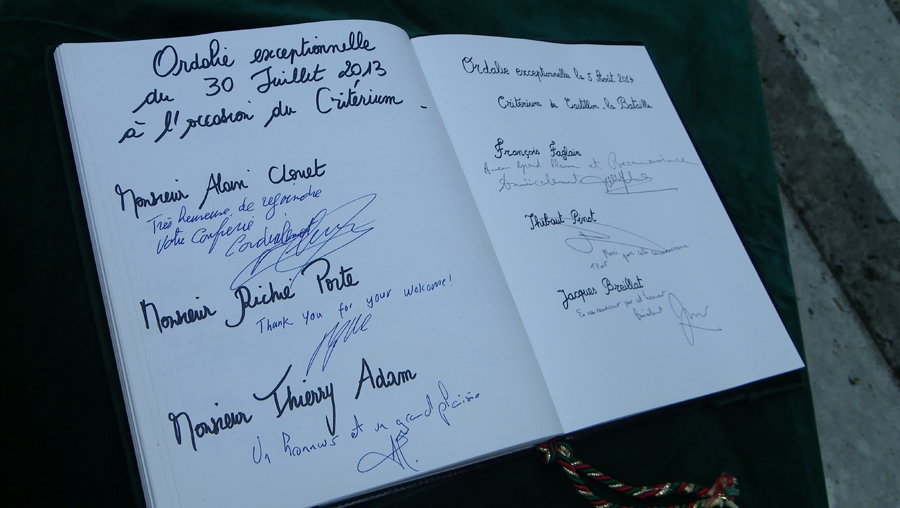 Ordalie exceptionnelle
du 30 Juillet 2013
à l'occasion du Critérium -
Monsieur Alain Clouet
Très heureuse de rejoindre
Votre Confrérie
Cordialement
Monsieur Richie Porte
Thank you for your welcome!
Monsieur Thierry Adam
Un honneur et un grand plaisir
Ordalie exceptionnelle le 5 Août
Critérium de Castillon la Bataille
François
Avec grand et Reconnaissance
Amicalement
Thibaut Pinot
Merci pour cette reconnaissance
Jacques Breillat